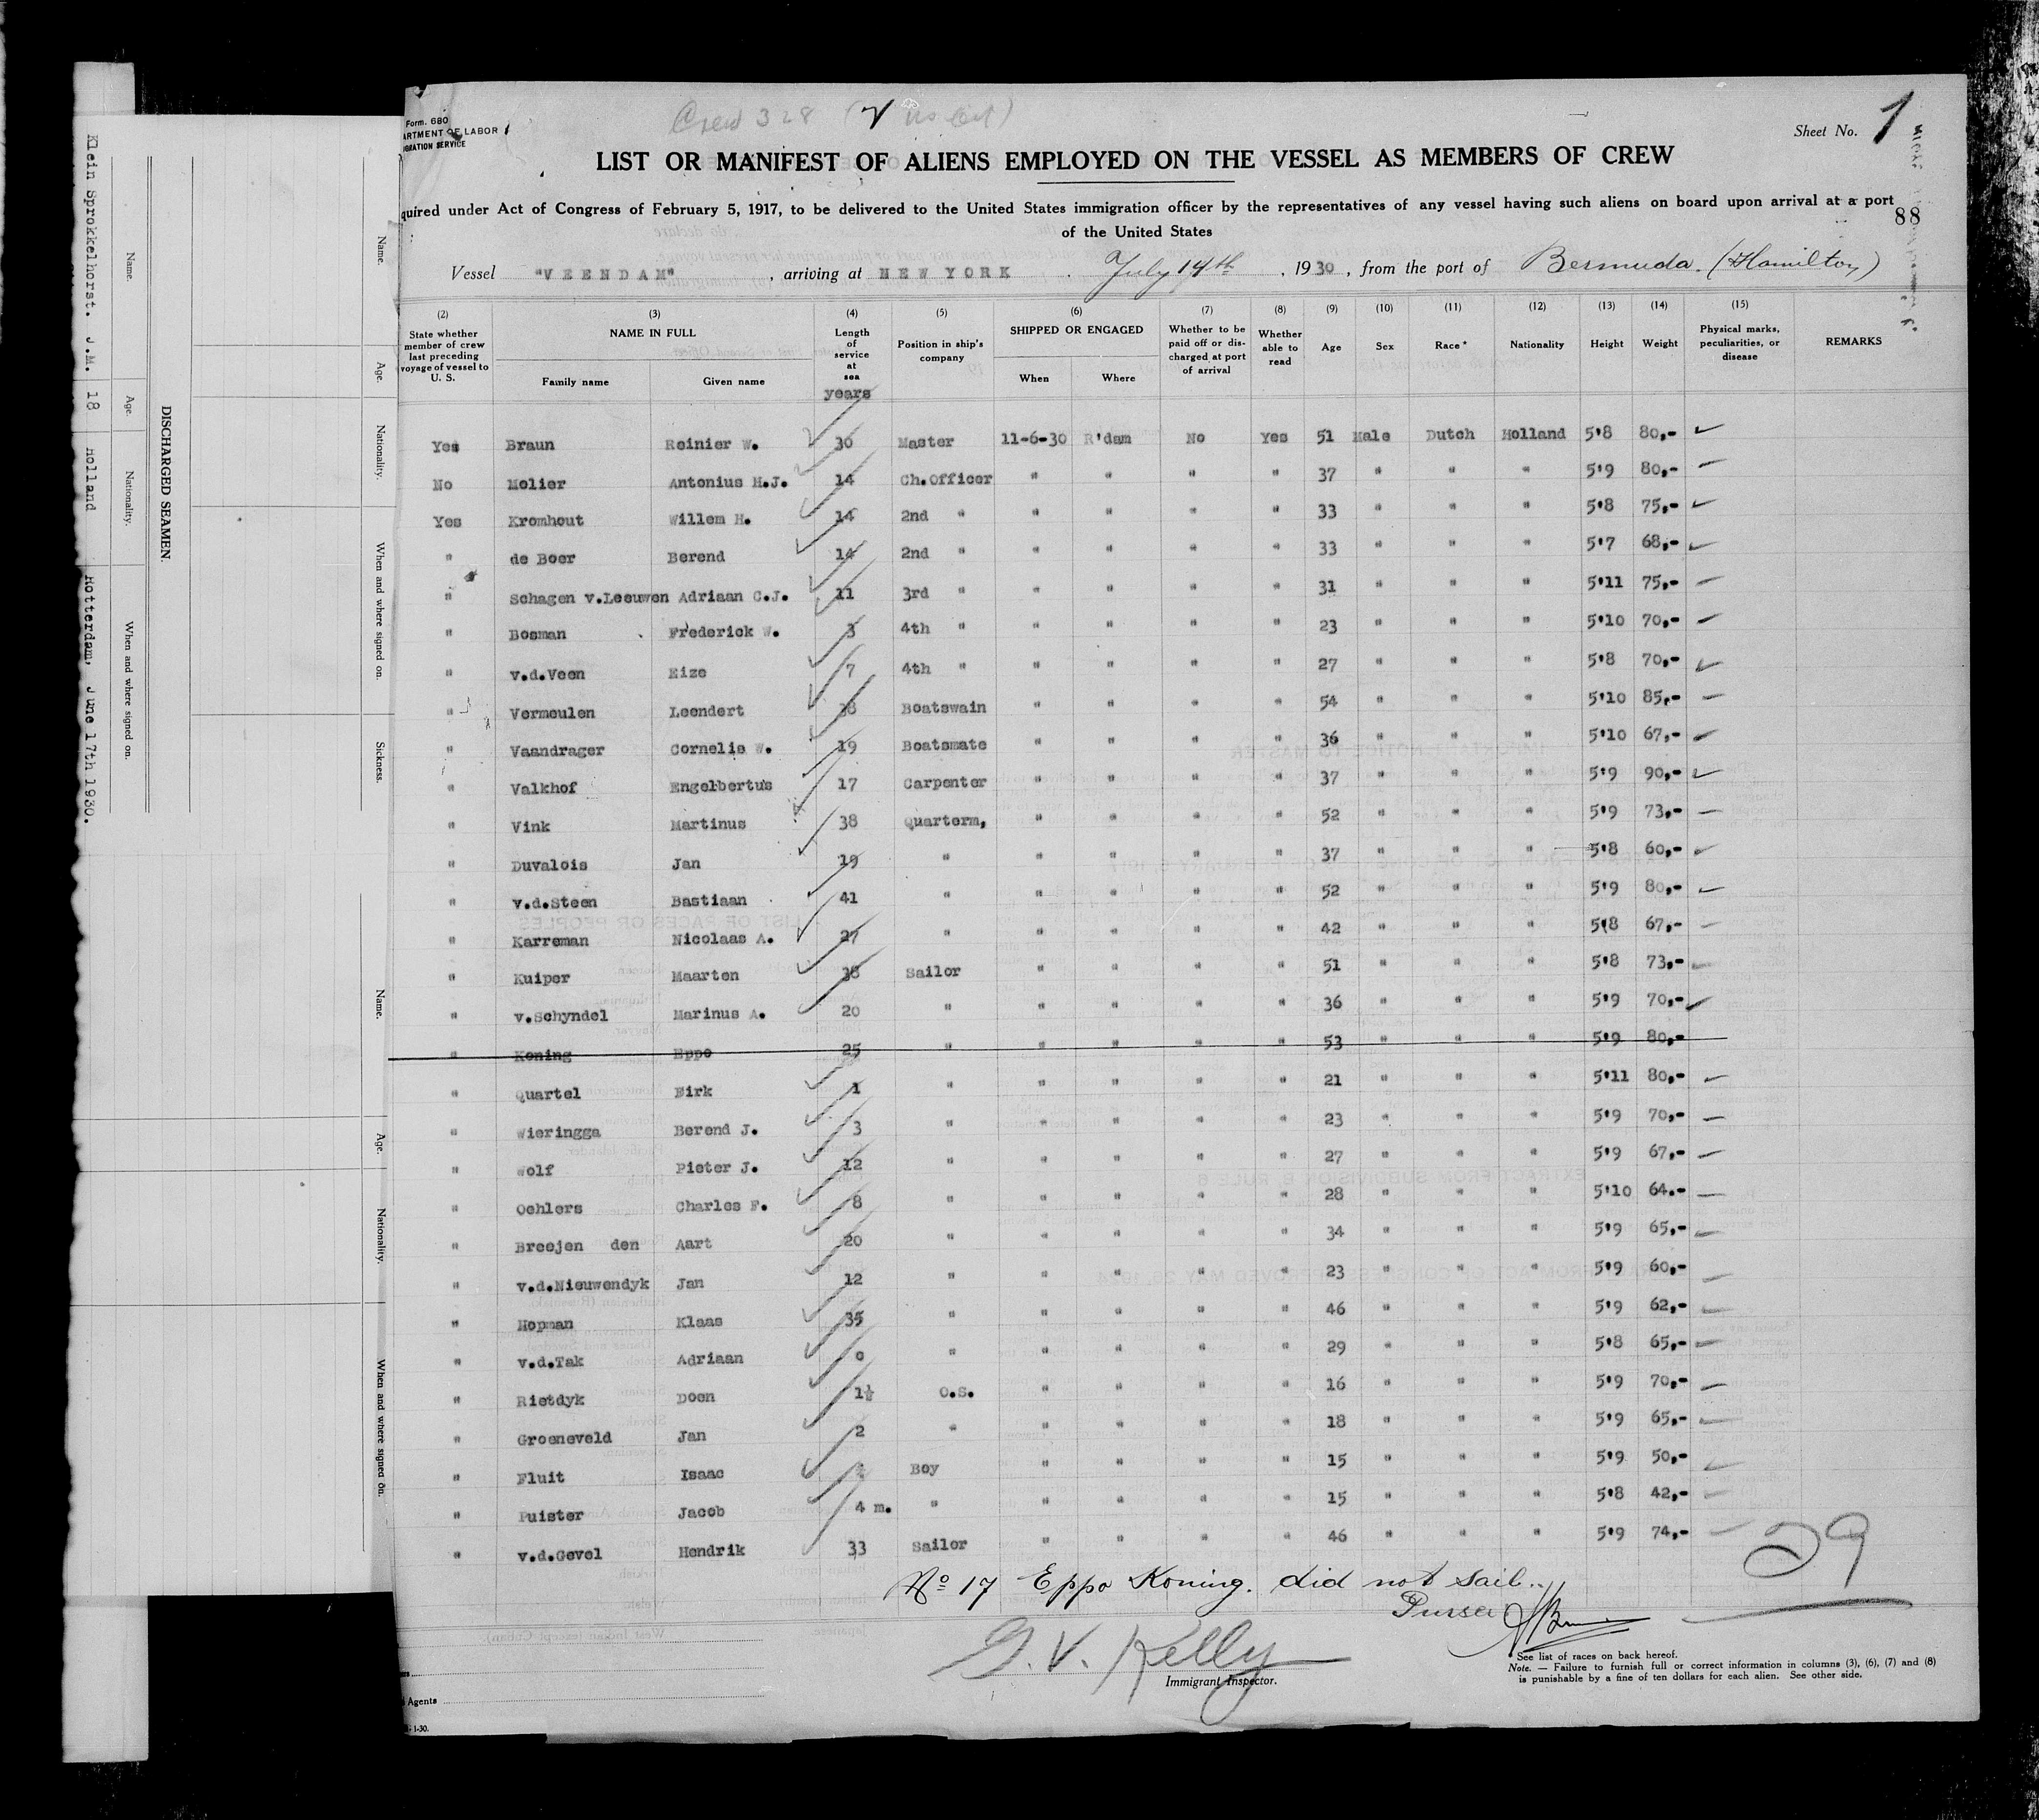 Crew 328
Form. 680
ARTMENT OF LABOR
IGRATION SERVICE
Sheet No. 1
LIST OR MANIFEST OF ALIENS EMPLOYED ON THE VESSEL AS MEMBERS OF CREW
quired under Act of Congress of February 5, 1917, to be delivered to the United States immigration officer by the representatives of any vessel having such aliens on board upon arrival at a port
of the United States
88
Vessel "VEENDAM", arriving at NEW YORK July 14th, 1930, from the port of Bermuda. (Hamilton)
(2) (3) (4) (5) (6) (7) (8) (9) (10) (11) (12) (13) (14) (15)
State whether member of crew last preceding voyage of vessel to U. S. NAME IN FULL Family name Given name Length of service at sea years Position in ship's company SHIPPED OR ENGAGED When Where Whether to be paid off or discharged at port of arrival Whether able to read Age Sex Race* Nationality Height Weight Physical marks, peculiarities, or disease REMARKS
Yes Braun Reinier W. 30 Master 11-6-30 R'dam No Yes 51 Male Dutch Holland 5'8 80,-
No Molier Antonius H.J. 14 Ch.Officer " " " " 37 " " " 5'9 80,-
Yes Kromhout Willem H. 14 2nd " " " " " 33 " " " 5'8 75,-
" de Boer Berend 14 2nd " " " " " 33 " " " 5'7 68,-
" Schagen v.Leeuwen Adriaan C.J. 11 3rd " " " " " 31 " " " 5'11 75,-
" Bosman Frederick W. 3 4th " " " " " 23 " " " 5'10 70,-
" v.d.Veen Eize 7 4th " " " " " 27 " " " 5'8 70,-
" Vermeulen Leendert 38 Boatswain " " " " 54 " " " 5'10 85,-
" Vaandrager Cornelis W. 19 Boatsmate " " " " 36 " " " 5'10 67,-
" Valkhof Engelbertus 17 Carpenter " " " " 37 " " " 5'9 90,-
" Vink Martinus 38 Quarterm, " " " " 52 " " " 5'9 73,-
" Duvalois Jan 19 " " " " " 37 " " " 5'8 60,-
" v.d.Steen Bastiaan 41 " " " " " 52 " " " 5'9 80,-
" Karreman Nicolaas A. 27 " " " " " 42 " " " 5'8 67,-
" Kuiper Maarten 38 Sailor " " " " 51 " " " 5'8 73,-
" v.Schyndel Marinus A. 20 " " " " " 36 " " " 5'9 70,-
" Koning Eppo 25 " " " " " 53 " " " 5'9 80,-
" Quartel Dirk 1 " " " " " 21 " " " 5'11 80,-
" Wieringga Berend J. 3 " " " " " 23 " " " 5'9 70,-
" Wolf Pieter J. 12 " " " " " 27 " " " 5'9 67,-
" Oehlers Charles F. 8 " " " " " 28 " " " 5'10 64.-
" Breejen den Aart 20 " " " " " 34 " " " 5'9 65,-
" v.d.Nieuwendyk Jan 12 " " " " " 23 " " " 5'9 60,-
" Hopman Klaas 35 " " " " " 46 " " " 5'9 62,-
" v.d.Tak Adriaan " " " " " 29 " " " 5'8 65,-
" Rietdyk Doen 1½ O.S. " " " " 16 " " " 5'9 70,-
" Groeneveld Jan 2 " " " " " 18 " " " 5'9 65,-
" Fluit Isaac Boy " " " " 15 " " " 5'9 50,-
" Puister Jacob 4 m. " " " " " 15 " " " 5'8 42,-
" v.d.Gevel Hendrik 33 Sailor " " " " 46 " " " 5'9 74,-
29
No 17 Eppo Koning. did not sail.
Purser
G. V. Kelly
Immigrant Inspector.
See list of races on back hereof.
Note. — Failure to furnish full or correct information in columns (3), (6), (7) and (8)
is punishable by a fine of ten dollars for each alien. See other side.
Agents
- 1-30.
Name. Age. Nationality. When and where signed on. Sickness.
Name. Age. Nationality. When and where signed on.
DISCHARGED SEAMEN.
Name. Age. Nationality. When and where signed on.
Klein Sprokkelhorst. J.M. 18 Holland Rotterdam, June 17th 1930.